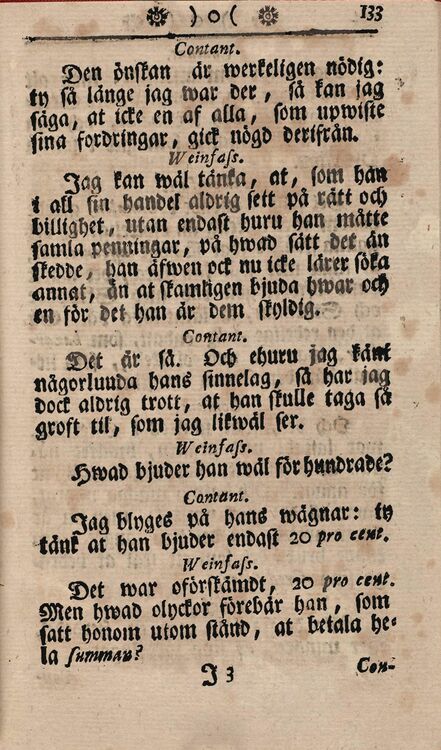 ❁ ) o ( ❁ 133
Contant.
Den önskan är werkeligen nödig:
ty så länge jag war der, så kan jag
säga, at icke en af alla, som upwiste
sina fordringar, gick nögd derifrån.
Weinfass.
Jag kan wäl tänka, at, som han
i all sin handel aldrig sett på rätt och
billighet, utan endast huru han måtte
samla penningar, på hwad sätt det än
skedde, han äfwen ock nu icke lärer söka
annat, än at skamligen bjuda hwar och
en för det han är dem skyldig.
Contant.
Det är så. Och ehuru jag känt
någorlunda hans sinnelag, så har jag
dock aldrig trott, at han skulle taga så
groft til, som jag likwäl ser.
Weinfass.
Hwad bjuder han wäl för hundrade?
Contant.
Jag blyges på hans wägnar: ty
tänk at han bjuder endast 20 pro cent.
Weinfass.
Det war oförskämdt, 20 pro cent.
Men hwad olyckor förebär han, som
satt honom utom stånd, at betala he-
la summan?
J 3 Con-